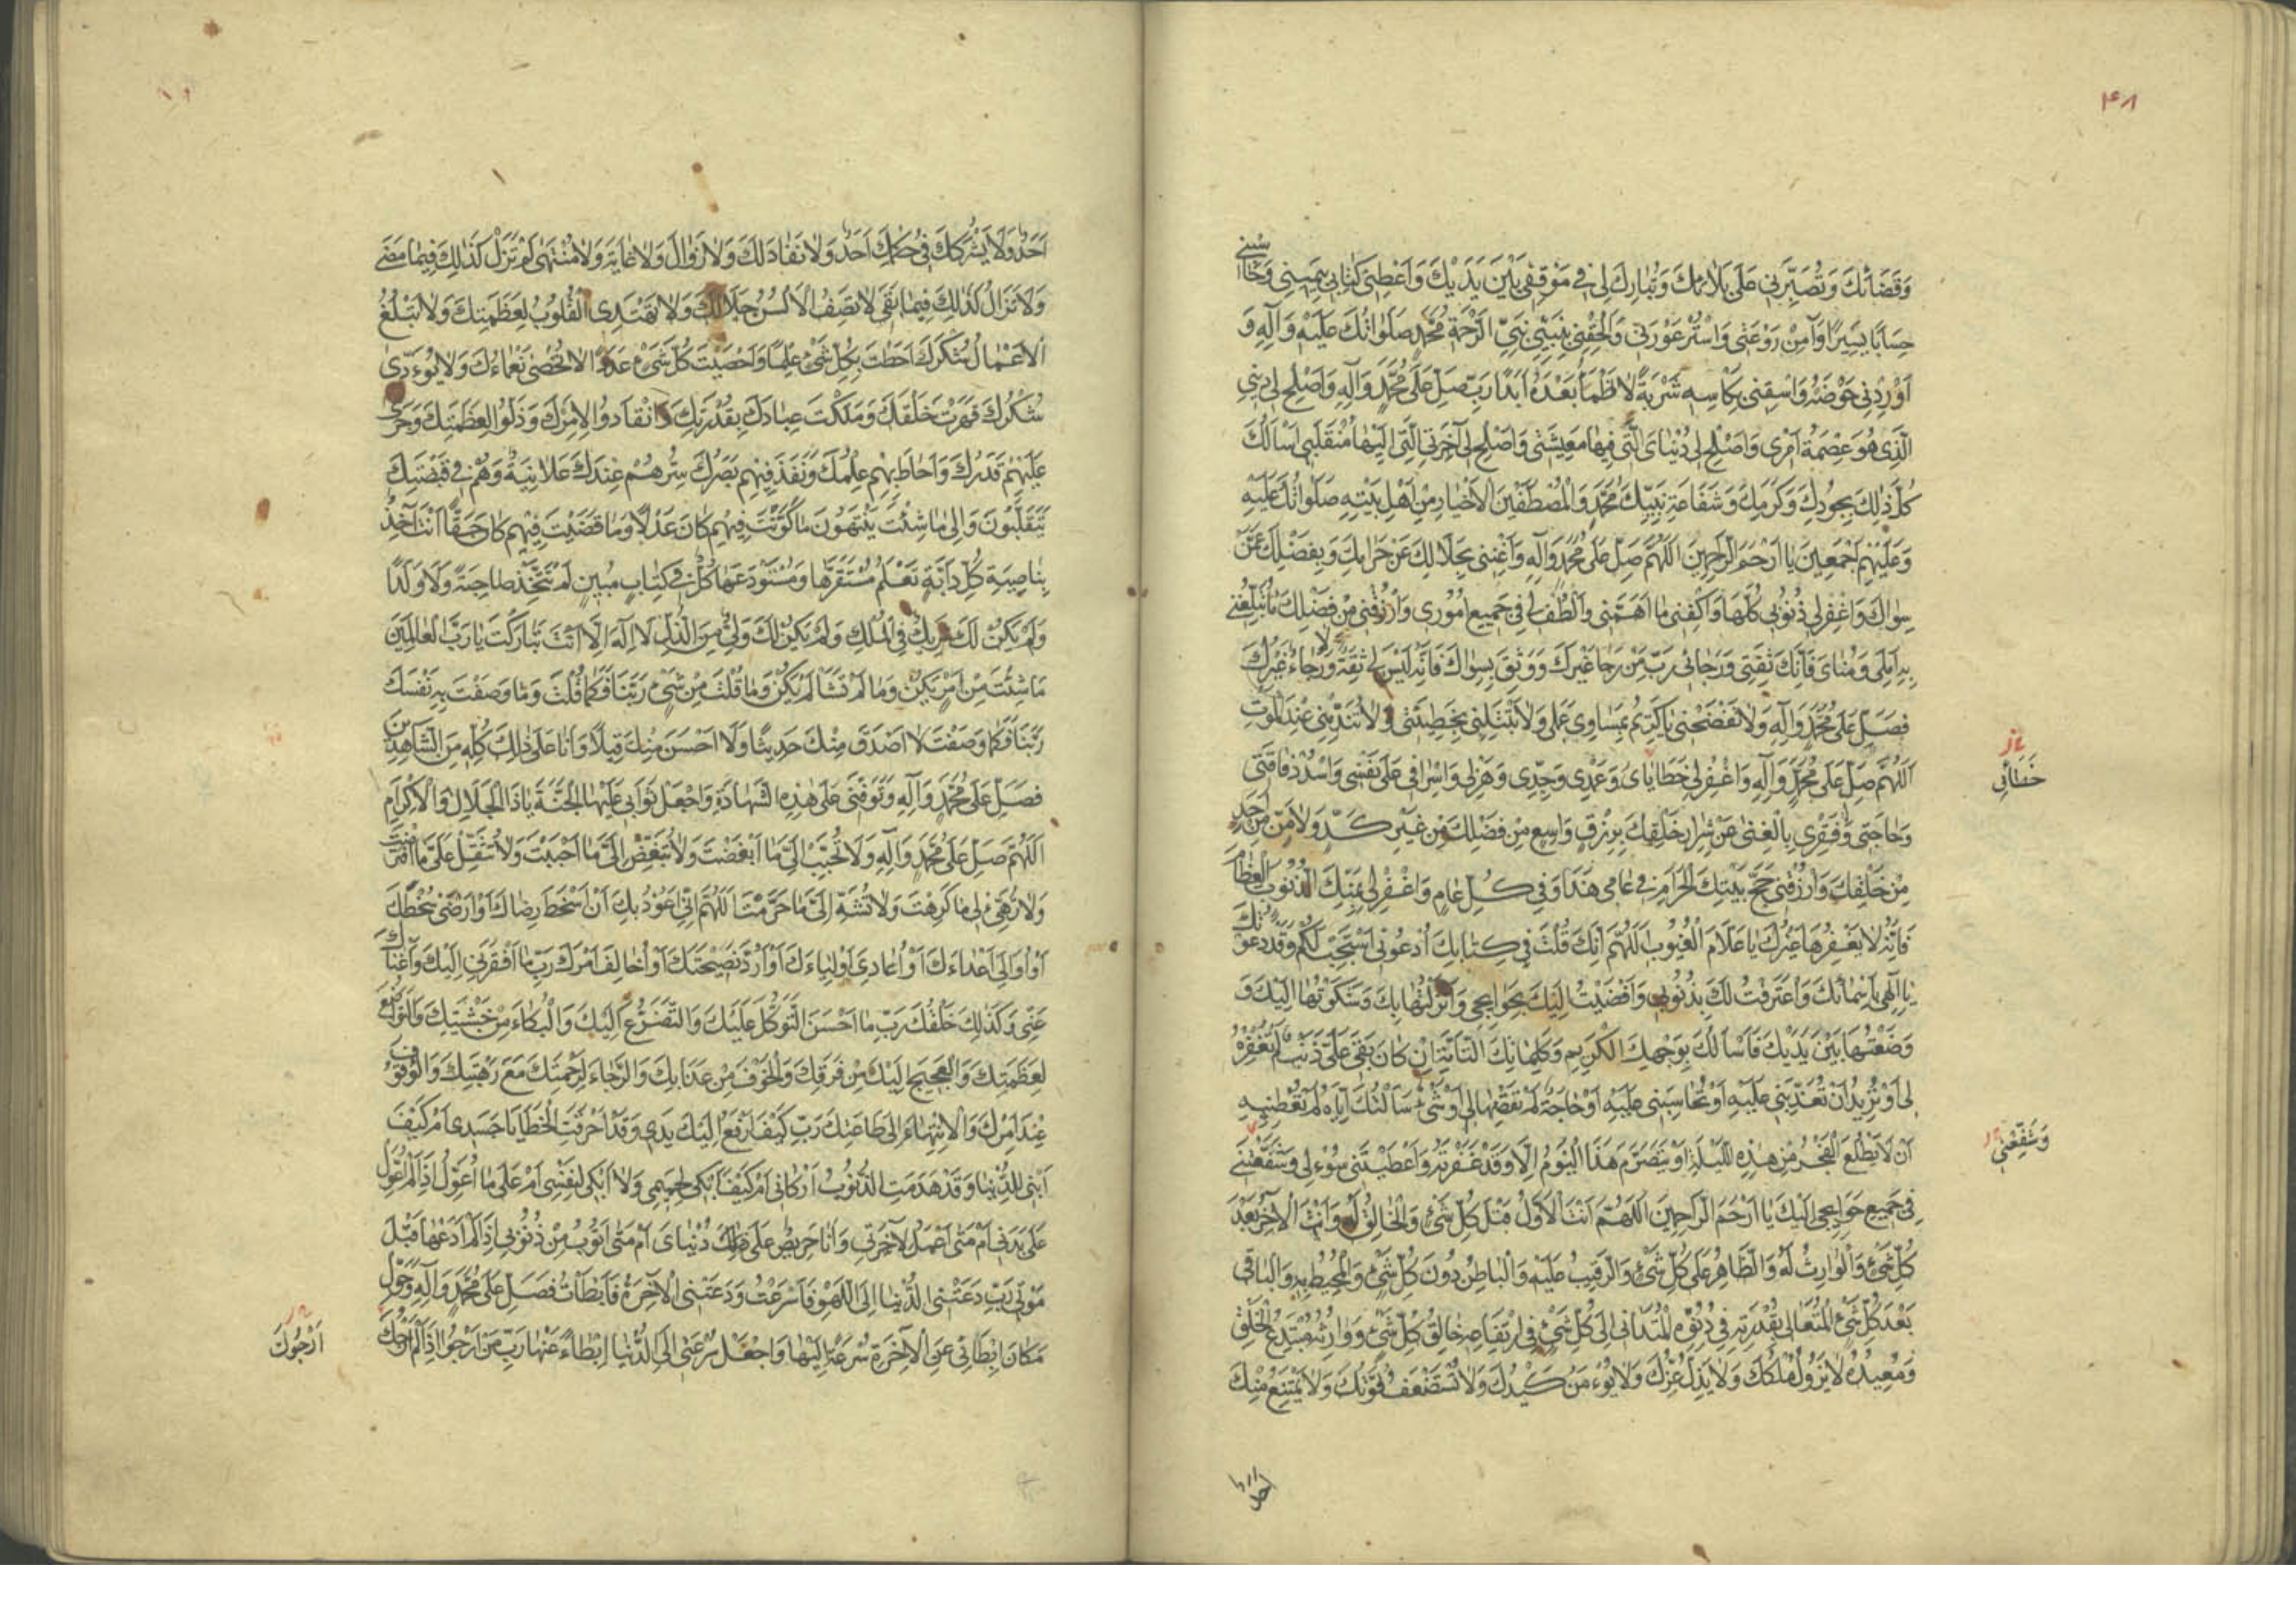 ۴۸
وَقَضَائِكَ وَتُصَبِّرَنِي عَلَى بَلَائِكَ وَتُبَارِكَ لِي فِي مَوْقِفِي بَيْنَ يَدَيْكَ وَأَعْطِنِي كِتَابِي بِيَمِينِي وَحَاسِبْنِي
حِسَابًا يَسِيرًا وَآمِنْ رَوْعَتِي وَاسْتُرْ عَوْرَتِي وَأَلْحِقْنِي بِنَبِيِّي نَبِيِّ الرَّحْمَةِ مُحَمَّدٍ صَلَوَاتُكَ عَلَيْهِ وَآلِهِ وَ
أَوْرِدْنِي حَوْضَهُ وَاسْقِنِي بِكَأْسِهِ شَرْبَةً لَا أَظْمَأُ بَعْدَهُ أَبَدًا رَبِّ صَلِّ عَلَى مُحَمَّدٍ وَآلِهِ وَأَصْلِحْ لِي دِينِي
الَّذِي هُوَ عِصْمَةُ أَمْرِي وَأَصْلِحْ لِي دُنْيَايَ الَّتِي فِيهَا مَعِيشَتِي وَأَصْلِحْ لِي آخِرَتِي الَّتِي إِلَيْهَا مُنْقَلَبِي أَسْأَلُكَ
كُلَّ ذَلِكَ بِجُودِكَ وَكَرَمِكَ وَشَفَاعَةِ نَبِيِّكَ مُحَمَّدٍ وَالْمُصْطَفَيْنَ الْأَخْيَارِ مِنْ أَهْلِ بَيْتِهِ صَلَوَاتُكَ عَلَيْهِ
وَعَلَيْهِمْ أَجْمَعِينَ يَا أَرْحَمَ الرَّاحِمِينَ اللَّهُمَّ صَلِّ عَلَى مُحَمَّدٍ وَآلِهِ وَأَغْنِنِي بِحَلَالِكَ عَنْ حَرَامِكَ وَبِفَضْلِكَ عَمَّنْ
سِوَاكَ وَاغْفِرْ لِي ذُنُوبِي كُلَّهَا وَاكْفِنِي مَا أَهَمَّنِي وَالْطُفْ لِي فِي جَمِيعِ أُمُورِي وَارْزُقْنِي مِنْ فَضْلِكَ مَا تُبَلِّغُنِي
بِهِ أَمَلِي وَمُنَايَ فَإِنَّكَ ثِقَتِي وَرَجَائِي رَبِّ مَنْ رَجَا غَيْرَكَ وَوَثِقَ بِسِوَاكَ فَإِنَّهُ لَيْسَ لِي ثِقَةٌ وَلَا رَجَاءٌ غَيْرُكَ
فَصَلِّ عَلَى مُحَمَّدٍ وَآلِهِ وَلَا تَفْضَحْنِي يَا كَرِيمُ بِمَسَاوِي عَمَلِي وَلَا تَبْتَلِنِي بِخَطِيئَتِي وَلَا تُنَدِّمْنِي عِنْدَ الْمَوْتِ
اللَّهُمَّ صَلِّ عَلَى مُحَمَّدٍ وَآلِهِ وَاغْفِرْ لِي خَطَايَايَ وَعَمْدِي وَجِدِّي وَهَزْلِي وَإِسْرَافِي عَلَى نَفْسِي وَاسْدُدْ فَاقَتِي
خَطَائِي
وَحَاجَتِي وَفَقْرِي بِالْغِنَى عَنْ شِرَارِ خَلْقِكَ بِرِزْقٍ وَاسِعٍ مِنْ فَضْلِكَ مِنْ غَيْرِ كَدٍّ وَلَا مَنٍّ مِنْ أَحَدٍ
مِنْ خَلْقِكَ وَارْزُقْنِي حَجَّ بَيْتِكَ الْحَرَامِ فِي عَامِي هَذَا وَفِي كُلِّ عَامٍ وَاغْفِرْ لِي الذُّنُوبَ الْعِظَامَ
فَإِنَّهُ لَا يَغْفِرُهَا غَيْرُكَ يَا عَلَّامَ الْغُيُوبِ اللَّهُمَّ إِنَّكَ قُلْتَ فِي كِتَابِكَ ادْعُونِي أَسْتَجِبْ لَكُمْ وَقَدْ دَعَوْتُكَ
يَا إِلَهِي بِأَسْمَائِكَ وَاعْتَرَفْتُ لَكَ بِذُنُوبِي وَأَفْضَيْتُ إِلَيْكَ بِحَوَائِجِي وَأَنْزَلْتُهَا بِكَ وَشَكَوْتُهَا إِلَيْكَ وَ
وَضَعْتُهَا بَيْنَ يَدَيْكَ فَأَسْأَلُكَ بِوَجْهِكَ الْكَرِيمِ وَكَلِمَاتِكَ التَّامَّةِ إِنْ كَانَ بَقِيَ عَلَيَّ ذَنْبٌ لَمْ تَغْفِرْهُ
لِي أَوْ تُرِيدُ أَنْ تُعَذِّبَنِي عَلَيْهِ أَوْ تُحَاسِبَنِي عَلَيْهِ أَوْ حَاجَةٌ لَمْ تَقْضِهَا لِي أَوْ شَيْءٌ سَأَلْتُكَ إِيَّاهُ لَمْ تُعْطِنِيهِ
أَنْ لَا يَطْلُعَ الْفَجْرُ مِنْ هَذِهِ اللَّيْلَةِ أَوْ يَتَصَرَّمَ هَذَا الْيَوْمُ إِلَّا وَقَدْ غَفَرْتَهُ وَأَعْطَيْتَنِي سُؤْلِي وَشَفَّعْتَنِي
وَشَفِّعْنِي
فِي جَمِيعِ حَوَائِجِي إِلَيْكَ يَا أَرْحَمَ الرَّاحِمِينَ اللَّهُمَّ أَنْتَ الْأَوَّلُ قَبْلَ كُلِّ شَيْءٍ وَالْخَالِقُ لَهُ وَأَنْتَ الْآخِرُ بَعْدَ
كُلِّ شَيْءٍ وَالْوَارِثُ لَهُ وَالظَّاهِرُ عَلَى كُلِّ شَيْءٍ وَالرَّقِيبُ عَلَيْهِ وَالْبَاطِنُ دُونَ كُلِّ شَيْءٍ وَالْمُحِيطُ بِهِ وَالْبَاقِي
بَعْدَ كُلِّ شَيْءٍ الْمُتَعَالِي بِقُدْرَتِهِ فِي دُنُوِّهِ الْمُتَدَانِي إِلَى كُلِّ شَيْءٍ فِي ارْتِفَاعِهِ خَالِقُ كُلِّ شَيْءٍ وَوَارِثُهُ مُبْتَدِعُ الْخَلْقِ
وَمُعِيدُهُ لَا يَزُولُ مُلْكُكَ وَلَا يَذِلُّ عِزُّكَ وَلَا يُؤْمَنُ كَيْدُكَ وَلَا تُسْتَضْعَفُ قُوَّتُكَ وَلَا يَمْتَنِعُ مِنْكَ
أَحَدٌ وَلَا يَشْرَكُكَ فِي حُكْمِكَ أَحَدٌ وَلَا نَفَادَ لَكَ وَلَا زَوَالَ وَلَا غَايَةَ وَلَا مُنْتَهَى لَمْ تَزَلْ كَذَلِكَ فِيمَا مَضَى
وَلَا تَزَالُ كَذَلِكَ فِيمَا بَقِيَ لَا تَصِفُ الْأَلْسُنُ جَلَالَكَ وَلَا تَهْتَدِي الْقُلُوبُ لِعَظَمَتِكَ وَلَا تَبْلُغُ
الْأَعْمَالُ شُكْرَكَ أَحَطْتَ بِكُلِّ شَيْءٍ عِلْمًا وَأَحْصَيْتَ كُلَّ شَيْءٍ عَدَدًا لَا تُحْصَى نَعْمَاؤُكَ وَلَا يُؤَدَّى
شُكْرُكَ قَهَرْتَ خَلْقَكَ وَمَلَكْتَ عِبَادَكَ بِقُدْرَتِكَ وَانْقَادُوا لِأَمْرِكَ وَذَلُّوا لِعَظَمَتِكَ وَجَرَى
عَلَيْهِمْ قَدَرُكَ وَأَحَاطَ بِهِمْ عِلْمُكَ وَنَفَذَ فِيهِمْ بَصَرُكَ سِرُّهُمْ عِنْدَكَ عَلَانِيَةٌ وَهُمْ فِي قَبْضَتِكَ
يَتَقَلَّبُونَ وَإِلَى مَا شِئْتَ يَنْتَهُونَ مَا كَوَّنْتَ فِيهِمْ كَانَ عَدْلًا وَمَا قَضَيْتَ فِيهِمْ كَانَ حَقًّا أَنْتَ آخِذٌ
بِنَاصِيَةِ كُلِّ دَابَّةٍ تَعْلَمُ مُسْتَقَرَّهَا وَمُسْتَوْدَعَهَا كُلٌّ فِي كِتَابٍ مُبِينٍ لَمْ تَتَّخِذْ صَاحِبَةً وَلَا وَلَدًا
وَلَمْ يَكُنْ لَكَ شَرِيكٌ فِي الْمُلْكِ وَلَمْ يَكُنْ لَكَ وَلِيٌّ مِنَ الذُّلِّ لَا إِلَهَ إِلَّا أَنْتَ تَبَارَكْتَ يَا رَبَّ الْعَالَمِينَ
مَا شِئْتَ مِنْ أَمْرٍ يَكُنْ وَمَا لَمْ تَشَأْ لَمْ يَكُنْ وَمَا قُلْتَ مِنْ شَيْءٍ رَبَّنَا فَكَمَا قُلْتَ وَمَا وَصَفْتَ بِهِ نَفْسَكَ
رَبَّنَا فَكَمَا وَصَفْتَ لَا أَصْدَقَ مِنْكَ حَدِيثًا وَلَا أَحْسَنَ مِنْكَ قِيلًا وَأَنَا عَلَى ذَلِكَ كُلِّهِ مِنَ الشَّاهِدِينَ
فَصَلِّ عَلَى مُحَمَّدٍ وَآلِهِ وَتَوَفَّنِي عَلَى هَذِهِ الشَّهَادَةِ وَاجْعَلْ ثَوَابِي عَلَيْهَا الْجَنَّةَ يَا ذَا الْجَلَالِ وَالْإِكْرَامِ
اللَّهُمَّ صَلِّ عَلَى مُحَمَّدٍ وَآلِهِ وَلَا تُحَبِّبْ إِلَيَّ مَا أَبْغَضْتَ وَلَا تُبَغِّضْ إِلَيَّ مَا أَحْبَبْتَ وَلَا تُثَقِّلْ عَلَيَّ مَا افْتَرَضْتَ
وَلَا تُهَيِّئْ لِي مَا كَرِهْتَ وَلَا تُشَهِّ إِلَيَّ مَا حَرَّمْتَ اللَّهُمَّ إِنِّي أَعُوذُ بِكَ أَنْ أَسْخَطَ رِضَاكَ أَوْ أَرْضَى سُخْطَكَ
أَوْ أُوَالِيَ أَعْدَاءَكَ أَوْ أُعَادِيَ أَوْلِيَاءَكَ أَوْ أَرُدَّ نَصِيحَتَكَ أَوْ أُخَالِفَ أَمْرَكَ رَبِّ مَا أَفْقَرَنِي إِلَيْكَ وَأَغْنَاكَ
عَنِّي وَكَذَلِكَ خَلْقُكَ رَبِّ مَا أَحْسَنَ التَّوَكُّلَ عَلَيْكَ وَالتَّضَرُّعَ إِلَيْكَ وَالْبُكَاءَ مِنْ خَشْيَتِكَ وَالتَّوَاضُعَ
لِعَظَمَتِكَ وَالْعَجِيجَ إِلَيْكَ مِنْ فَرَقِكَ وَالْخَوْفَ مِنْ عَذَابِكَ وَالرَّجَاءَ لِرَحْمَتِكَ مَعَ رَهْبَتِكَ وَالْوُقُوفَ
عِنْدَ أَمْرِكَ وَالْاِنْتِهَاءَ إِلَى طَاعَتِكَ رَبِّ كَيْفَ أَرْفَعُ إِلَيْكَ يَدِي وَقَدْ أَحْرَقَتِ الْخَطَايَا جَسَدِي أَمْ كَيْفَ
أَبْنِي لِلدُّنْيَا وَقَدْ هَدَمَتِ الذُّنُوبُ أَرْكَانِي أَمْ كَيْفَ أَبْكِي لِحَمِيمِي وَلَا أَبْكِي لِنَفْسِي أَمْ عَلَى مَا أُعَوِّلُ إِذَا لَمْ أُعَوِّلْ
عَلَى بَدَنِي أَمْ مَتَى أَعْمَلُ لِآخِرَتِي وَأَنَا حَرِيصٌ عَلَى دُنْيَايَ أَمْ مَتَى أَتُوبُ مِنْ ذُنُوبِي إِذَا لَمْ أَدَعْهَا قَبْلَ
مَوْتِي رَبِّ دَعَتْنِي الدُّنْيَا إِلَى اللَّهْوِ فَأَسْرَعْتُ وَدَعَتْنِي الْآخِرَةُ فَأَبْطَأْتُ فَصَلِّ عَلَى مُحَمَّدٍ وَآلِهِ وَحَوِّلْ
مَكَانَ إِبْطَائِي عَنِ الْآخِرَةِ سُرْعَةً إِلَيْهَا وَاجْعَلْ سُرْعَتِي إِلَى الدُّنْيَا إِبْطَاءً عَنْهَا رَبِّ مَنْ أَرْجُو إِذَا لَمْ أَرْجُكَ
أَرْجُوكَ